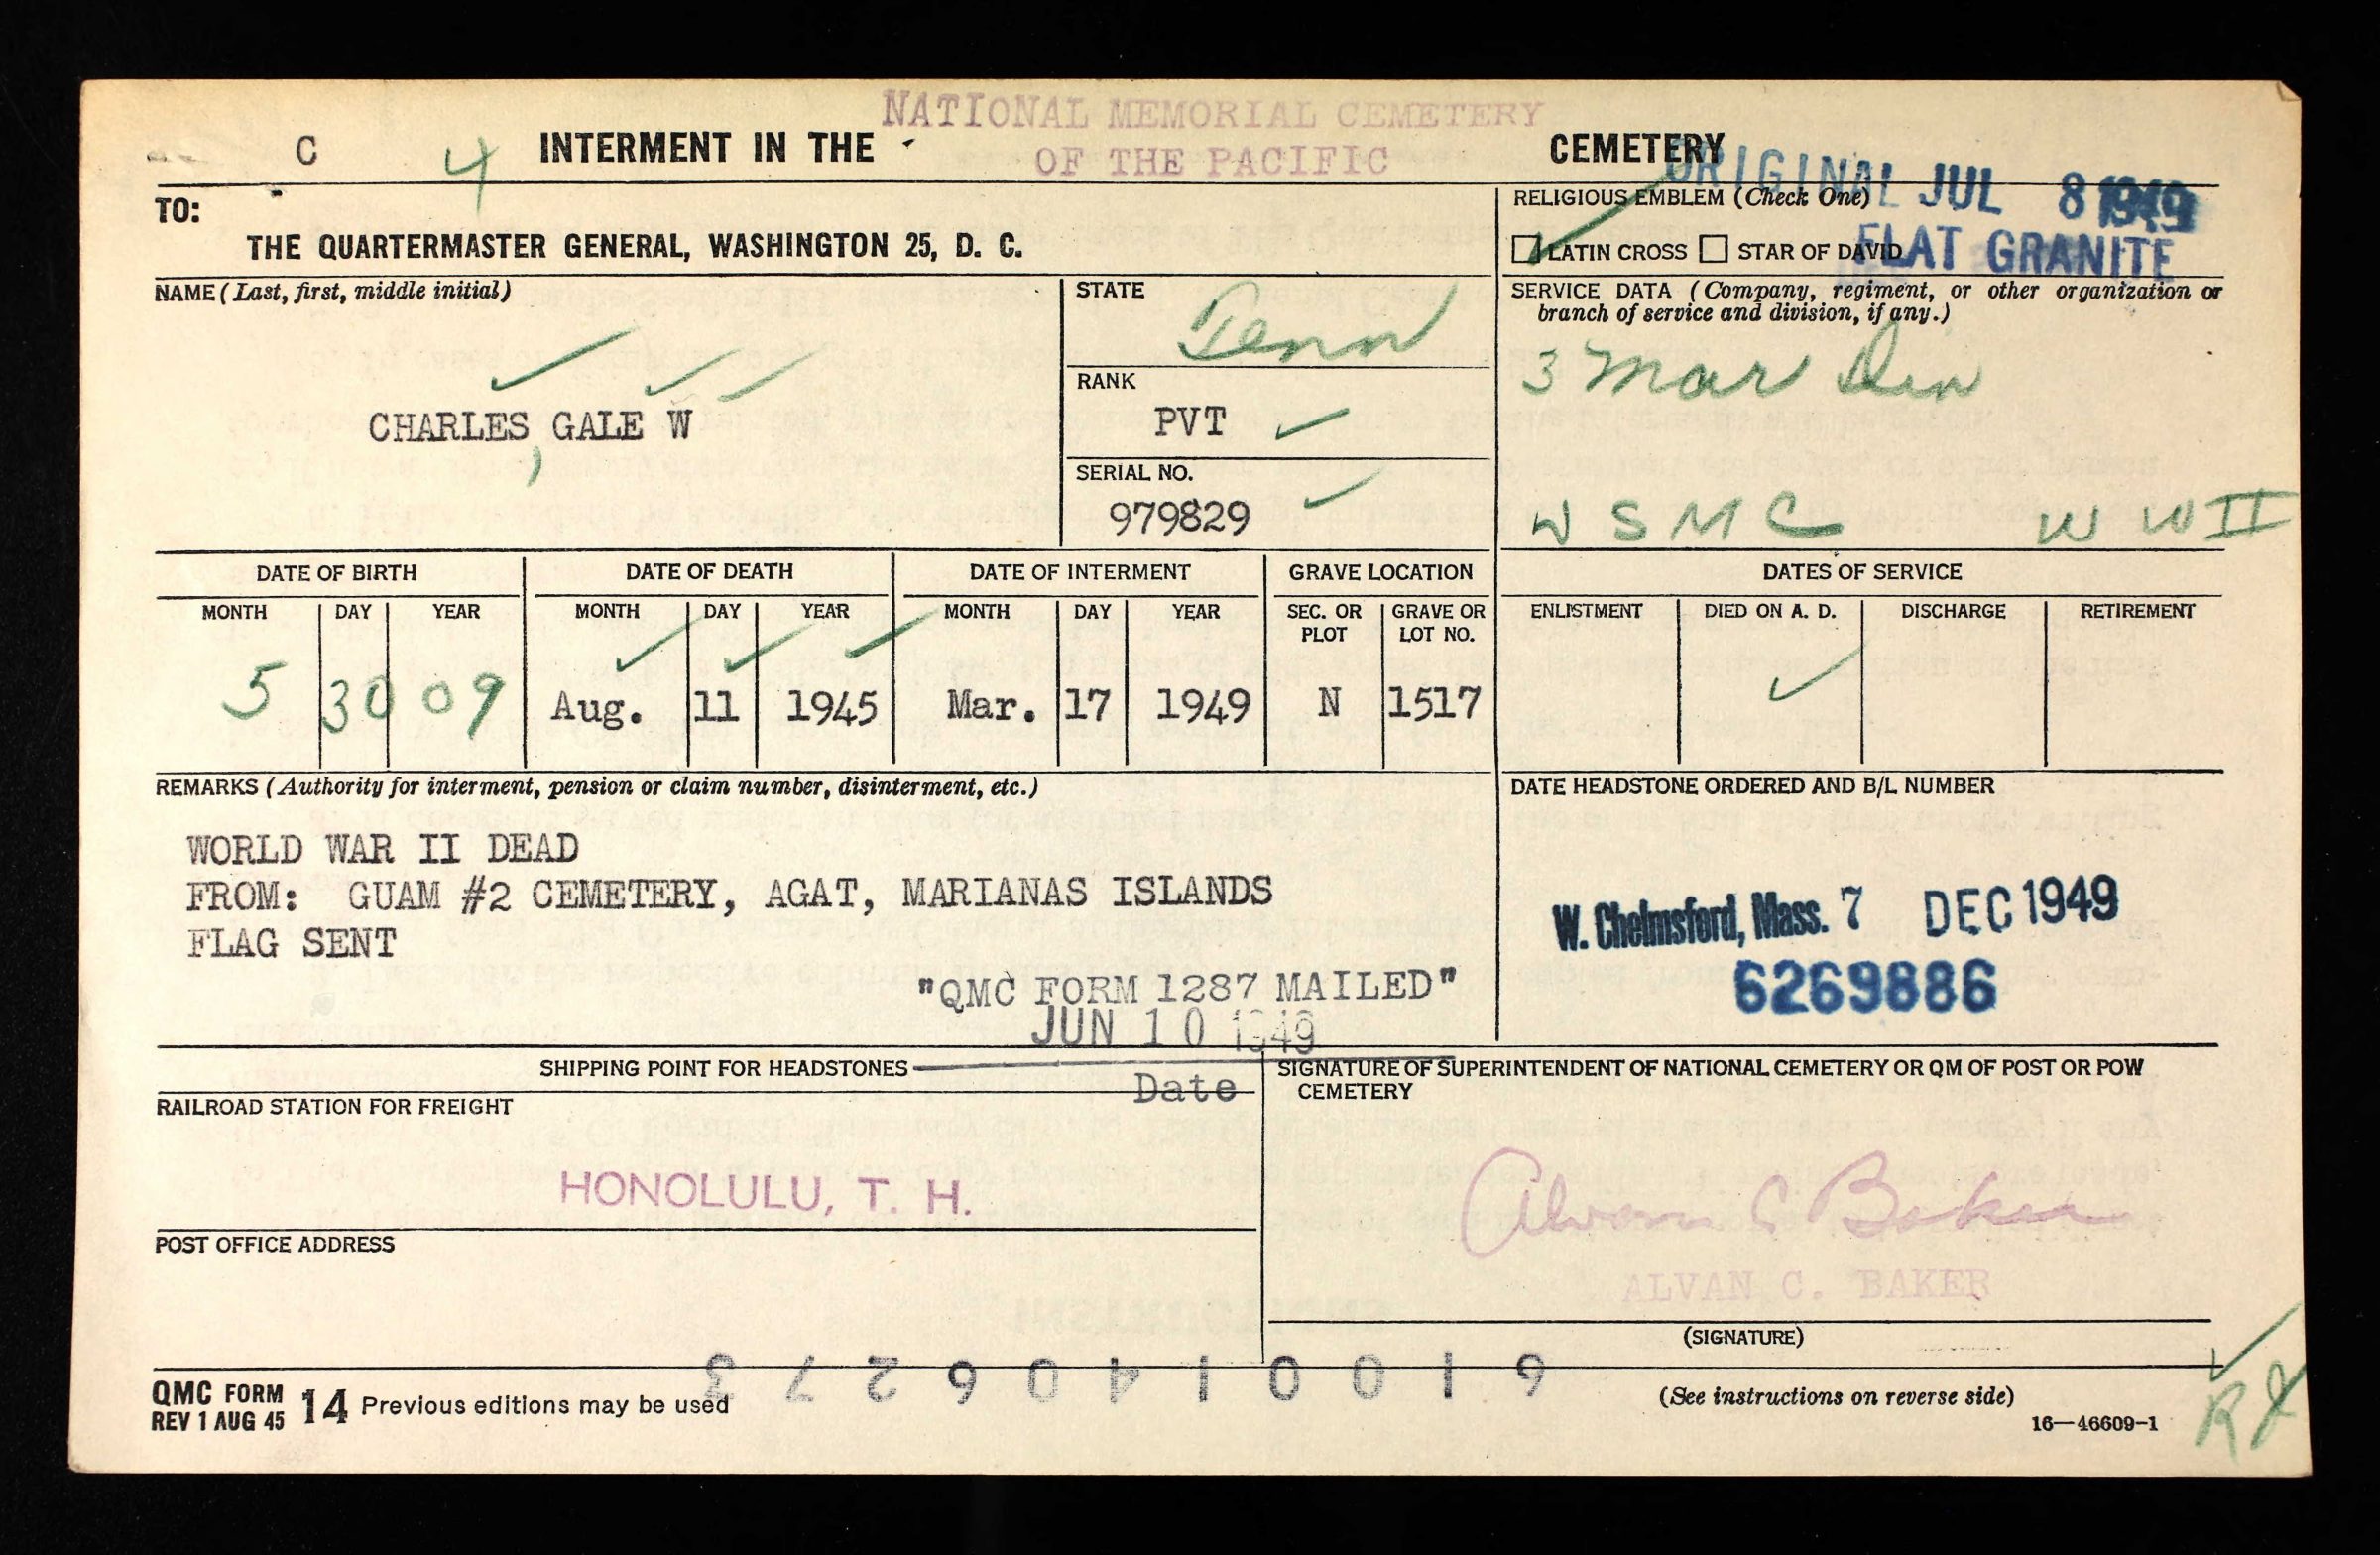 NATIONAL MEMORIAL CEMETERY
C 4 INTERMENT IN THE OF THE PACIFIC CEMETERY
ORIGINAL JUL 8 1949
TO:
THE QUARTERMASTER GENERAL, WASHINGTON 25, D. C.
RELIGIOUS EMBLEM (Check One)
LATIN CROSS STAR OF DAVID
FLAT GRANITE
NAME (Last, first, middle initial)
CHARLES, GALE W
STATE
Tenn
RANK
PVT
SERIAL NO.
979829
SERVICE DATA (Company, regiment, or other organization or
branch of service and division, if any.)
3 Mar Div
USMC WWII
DATE OF BIRTH DATE OF DEATH DATE OF INTERMENT GRAVE LOCATION DATES OF SERVICE
MONTH DAY YEAR MONTH DAY YEAR MONTH DAY YEAR SEC. OR PLOT GRAVE OR LOT NO. ENLISTMENT DIED ON A. D. DISCHARGE RETIREMENT
5 30 09 Aug. 11 1945 Mar. 17 1949 N 1517
REMARKS (Authority for interment, pension or claim number, disinterment, etc.)
WORLD WAR II DEAD
FROM: GUAM #2 CEMETERY, AGAT, MARIANAS ISLANDS
FLAG SENT
"QMC FORM 1287 MAILED"
JUN 10 1949
Date
DATE HEADSTONE ORDERED AND B/L NUMBER
W. Chelmsford, Mass. 7 DEC 1949
6269886
SHIPPING POINT FOR HEADSTONES
RAILROAD STATION FOR FREIGHT
HONOLULU, T. H.
POST OFFICE ADDRESS
SIGNATURE OF SUPERINTENDENT OF NATIONAL CEMETERY OR QM OF POST OR POW
CEMETERY
Alvan C Baker
ALVAN C. BAKER
(SIGNATURE)
QMC FORM 14 Previous editions may be used
REV 1 AUG 45
(See instructions on reverse side)
16—46609-1